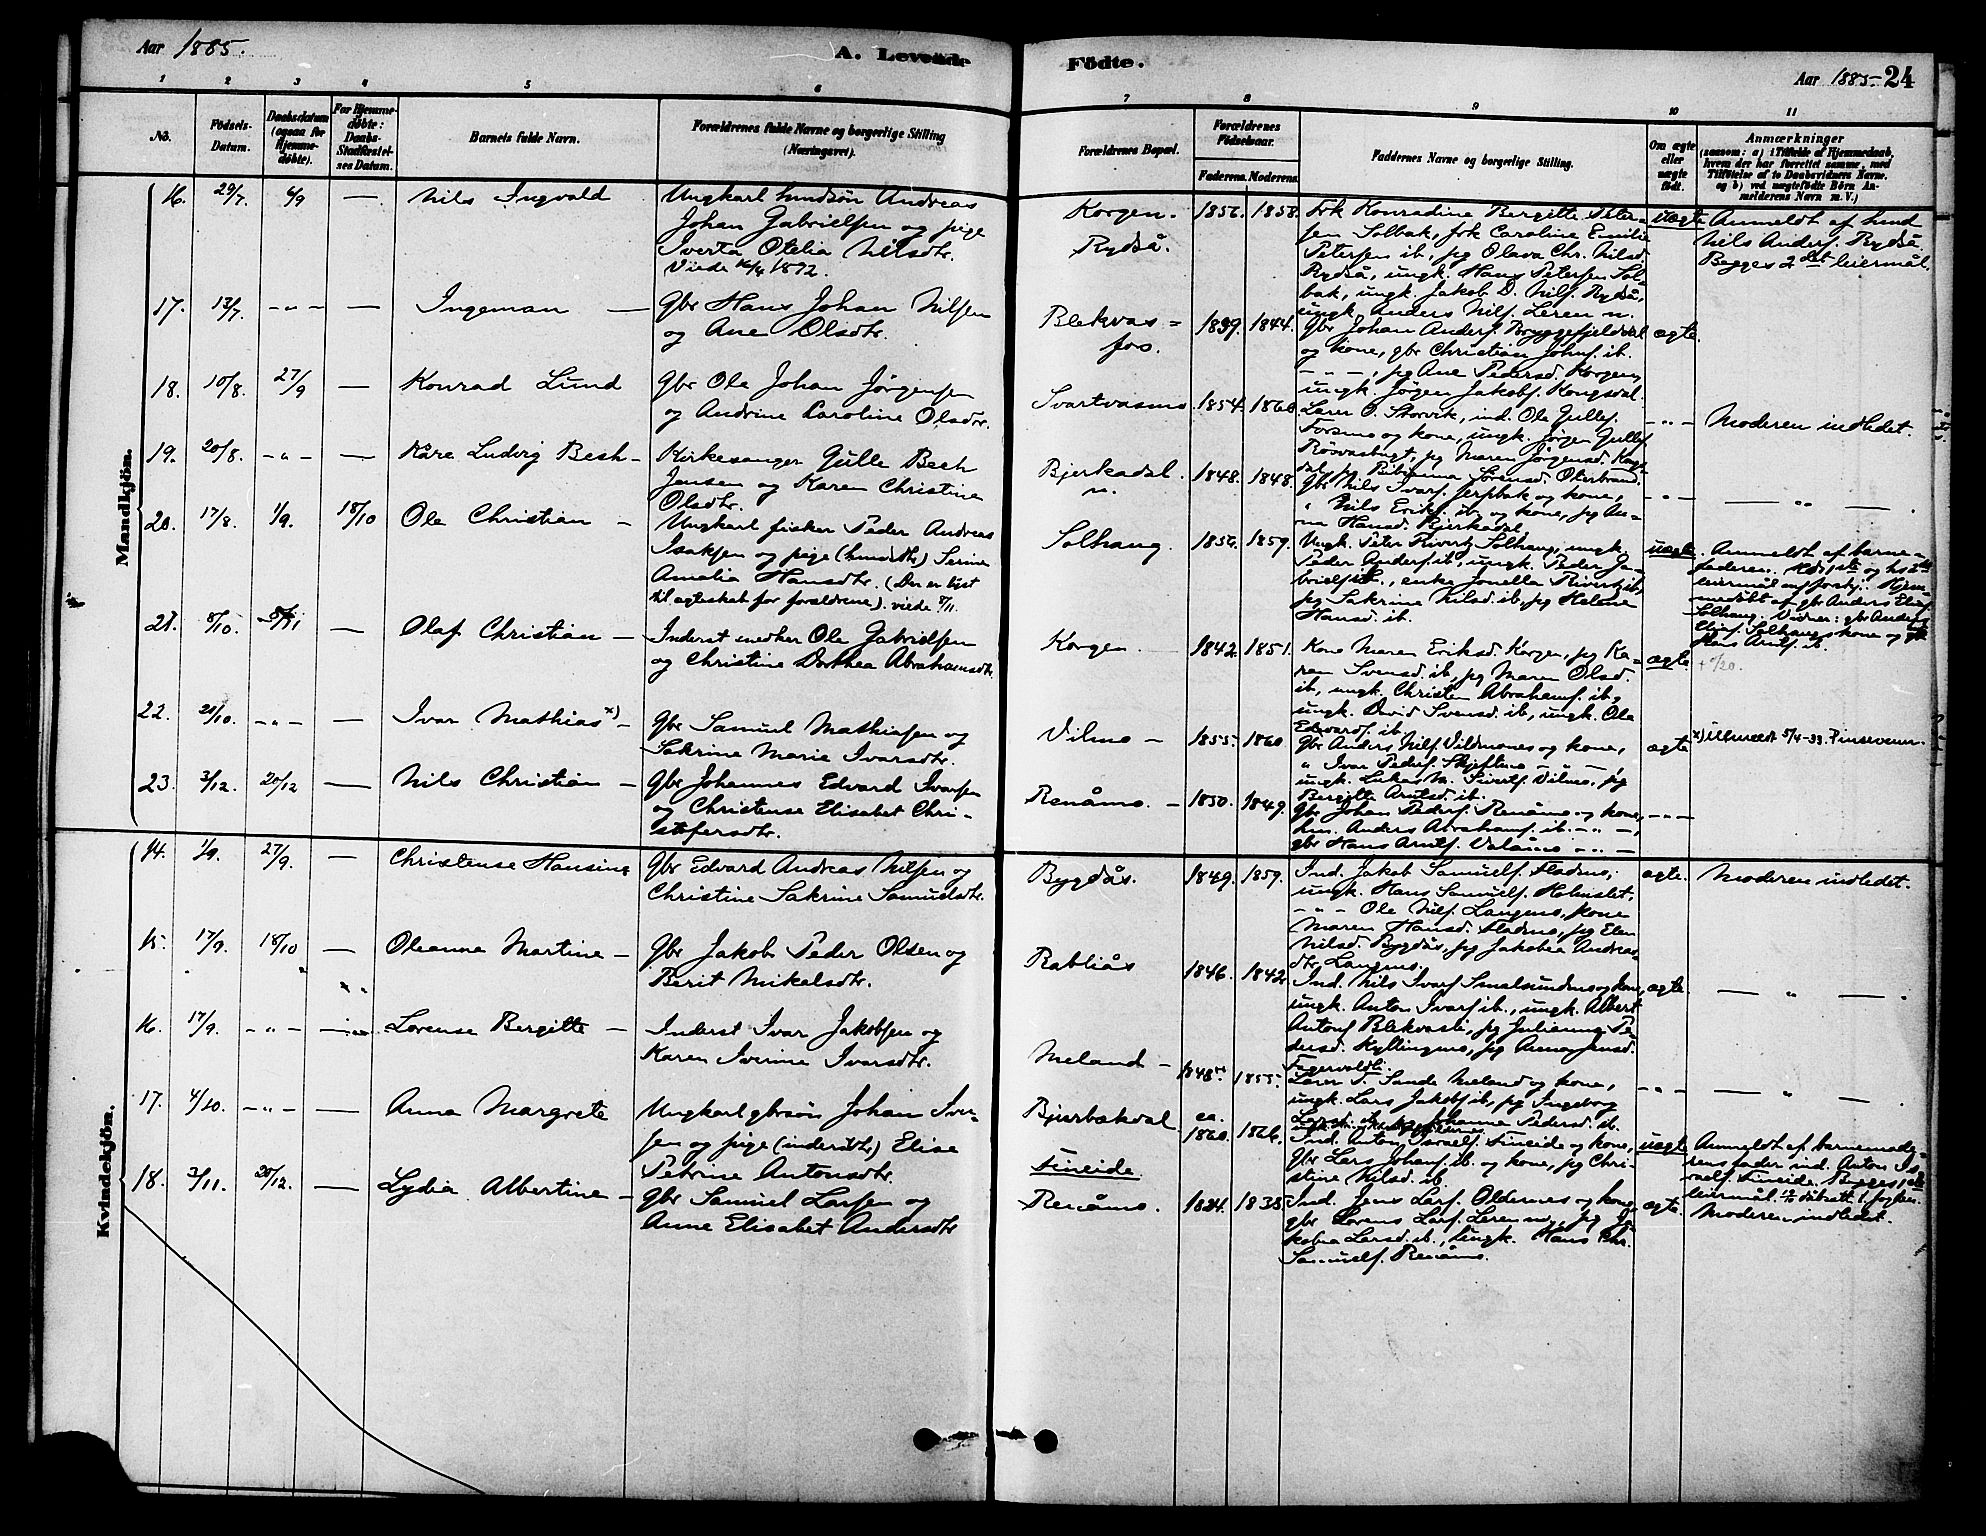 Aar 1885.
A. Levende Födte.
Aar 1885 24
1 2 3 4 5 6 7 8 9 10 11
No.
Födsels-Datum.
Daabsdatum (ogsaa for Hjemme-döbte).
For Hjemme-döbte: Daabs-Stadfæstel-ses Datum.
Barnets fulde Navn.
Forældrenes fulde Navne og borgerlige Stilling (Næringsvei).
Forældrenes Bopæl.
Forældrenes Födselsaar.
Faderens. Moderens.
Faddernes Navne og borgerlige Stilling.
Om ægte eller uægte födt.
Anmærkninger
(saasom: a) i Tilfælde af Hjemmedaab, hvem der har forrettet samme, med Tilföielse af to Daabsvidners Navne. og b) ved uægtefödte Börn An-melderens Navn m. V.)
Mandkjön.
16. 29/7 6/9 — Nils Ingvald
Ungkarl hundsön Andreas
Johan Gabrielsen og pige
Iverta Otelia Nilsdtr.
Viede 16/4 1892.
Korgen.
Rydså.
1856. 1858.
Frk Konradine Bergitte Peter-
sen Solbak, frk Caroline Emilie
Petersen ib, pg Olava Chr. Nilsd.
Rydså, ungk. Hans Petersen Sol-
bak, ungk. Jakob D. Nilf. Rydså,
ungk. Anders Nilf. Leren n.
uægte
Anmeldt af hund
Nils Anderf. Rydså.
Begges 2det leiermål.
17. 13/7 -"- — Ingeman —
Gbr Hans Johan Nilsen
og Ane Olsdtr.
Blekvas=
fos.
1839. 1844.
Gbr Johan Anderf. Bryggefjelddal
og kone, gbr Christian Johnf. ib.
-"-, pg Ane Pedersd. Korgen,
ungk. Jörgen Jakobf. Kongsdal.
ægte.
18. 10/8. 27/9 — Konrad Lund
Gbr Ole Johan Jörgensen
og Andrine Caroline Olsdtr.
Svartvasmo
1854. 1860
Lærer O. Storvik, ind. Ole Gullef.
Forsmo og kone, ungk. Jörgen Gullef
Rösvasbugt, pg Maren Jörgensd. Kogs
dal, pg Bibianna Sörensd. Oterbrand.
-"- Moderen indledet.
19. 20/8. -"- — Kåre Ludvig Bech -
Kirkesanger Gulle Bech
Jensen og Karen Christine
Olsdtr.
Bjerkadal
n.
1848. 1848.
Gbr Nils Ivarf. Jerpbak og kone,
" Nils Erikf. ib. og kone, pg An-
na Hansd. Bjerkadal.
-"- — " —
20. 17/8. 1/9. 18/10 Ole Christian -
Ungkarl fisker Peder Andreas
Isaksen og pige (hundtr) Serine
Amalia Hansdtr. (Der er lyst
til ægteskab for forældrene). viede 8/11.
Solhaug.
1856. 1859.
Ungk. Peter Rivertz Solhaug, ungk.
Peder Anderf. ib, ungk. Peder Ga-
brielf. ib., enke Jonella Rivertz ib,
pg Sakrine Nilsd. ib, pg Helene
Hansd. ib.
uægte
Anmeldt af barne=
faderen.
leiermål
medöbt af gbr Anders Elief.
Solhaug. Vidner: gbr Anders
Elief. Solhaugs kone og
Hans Arntf. ib.
21. 8/10. 8/11 — Olaf Christian -
Inderst snedker Ole Gabrielsen
og Christine Dorthea Abrahamsdtr.
Korgen
1842. 1851.
Kone Maren Eriksd. Korgen, pg Ka-
ren Svensd. ib, pg Maren Olsd.
ib, ungk. Christen Abrahamf. ib,
ungk. David Svensd. ib, ungk. Ole
Edvardf. ib.
ægte
22. 21/10. -"- — Ivar Mathias x) -
Gbr Samuel Mathiasen og
Sakrine Marie Ivarsdtr.
Vilmo -
1855. 1860
Gbr Anders Nilf. Vildmones og kone,
" Ivar Pederf. Skjeftmo -"-,
ungk. Lukas M. Sivertf. Vilmo, pg
Bergitte Arntsd. ib.
ægte
x) Utmeldt 5/4-33. Pinsevenn.
23. 3/12. 20/12 — Nils Christian -
Gbr Johannes Edvard Ivarsen
og Christense Elisabet Chri-
stofersdtr.
Renåmo. -
1850. 1849.
Gbr Johan Pederf. Renåmo og kone,
hm. Anders Abrahamf. ib. -"-,
gbr Hans Arntf. Valåmo -"-
-"-
Kvindekjön.
14. 1/9. 27/9. — Christense Hansine
Gbr Edvard Andreas Nilsen og
Christine Sakrine Samuelsdtr.
Bygdås.
1849. 1859.
Ind. Jakob Samuelf. Fladmo,
ungk. Hans Samuelf. Holmslet,
-"- Ole Nilf. Langmo, kone
Maren Hansd. Fladmo, pg Elen
Nilsd. Bygdås, pg Jakobea Andreas-
dtr Langmo.
ægte. Moderen indledet.
15. 17/9. 18/10 — Oleanna Martine -
Gbr Jakob Peder Olsen og
Berit Mikelsdtr.
Rabliås
1846. 1842
Ind. Nils Ivarf. Smalsundmo og kone,
ungk. Anton Ivarf. ib., ungk. Albert
Antonf Blekvasli, pg Julianna Pe-
dersd. Kyllingmo, pg Anna Jensd.
Fagervoldli.
ægte. — " — .
16. 17/9. -"- — Lorense Bergitte -
Inderst Ivar Jakobsen og
Karen Iverine Ivarsdtr.
Meland -
1848. 1855.
Lærer P. Sunde Meland og kone,
ungk. Lars Jakobf ib, pg Ingeborg
Larsd. ib, pg Johanna Pedersd. ib.
-"- — " — .
17. 4/10. -"- — Anna Margrete
Ungkarl gbrsön Johan Iver-
sen og pige (inderstdtr) Elise
Petrine Antonsdtr.
Bjurbækdal
Fineide
ca. 1860. 1866.
Ind. Anton Israelf. Fineide og kone,
gbr Lars Johanf. ib. og kone, pg Chri-
stine Nilsd. ib.
uægte
Anmeldt af barnemode-
rens fader ind. Anton Is-
raelf. Fineide. Begges 1ste
leiermål.
18. 3/11. 20/12. — Lydia Albertine -
Gbr Samuel Larsen og
Anne Elisabet Andersdtr
Renåmo.
1824. 1838.
Ind. Jens Larf. Oldernes og kone,
gbr Lorens Larf. Leren n., pg Ja-
kobea Larsd. ib., ungk. Hans Chr.
Samuelf. Renåmo.
ægte.
Moderen indledet.